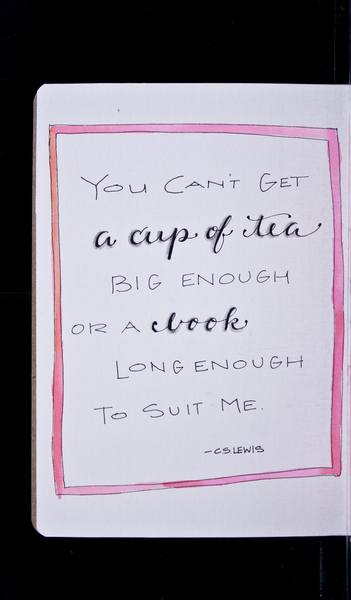 You Can't Get
a cup of tea
BIG ENOUGH
OR A book
LONG ENOUGH
To SUIT ME.
—C.S. LEWIS